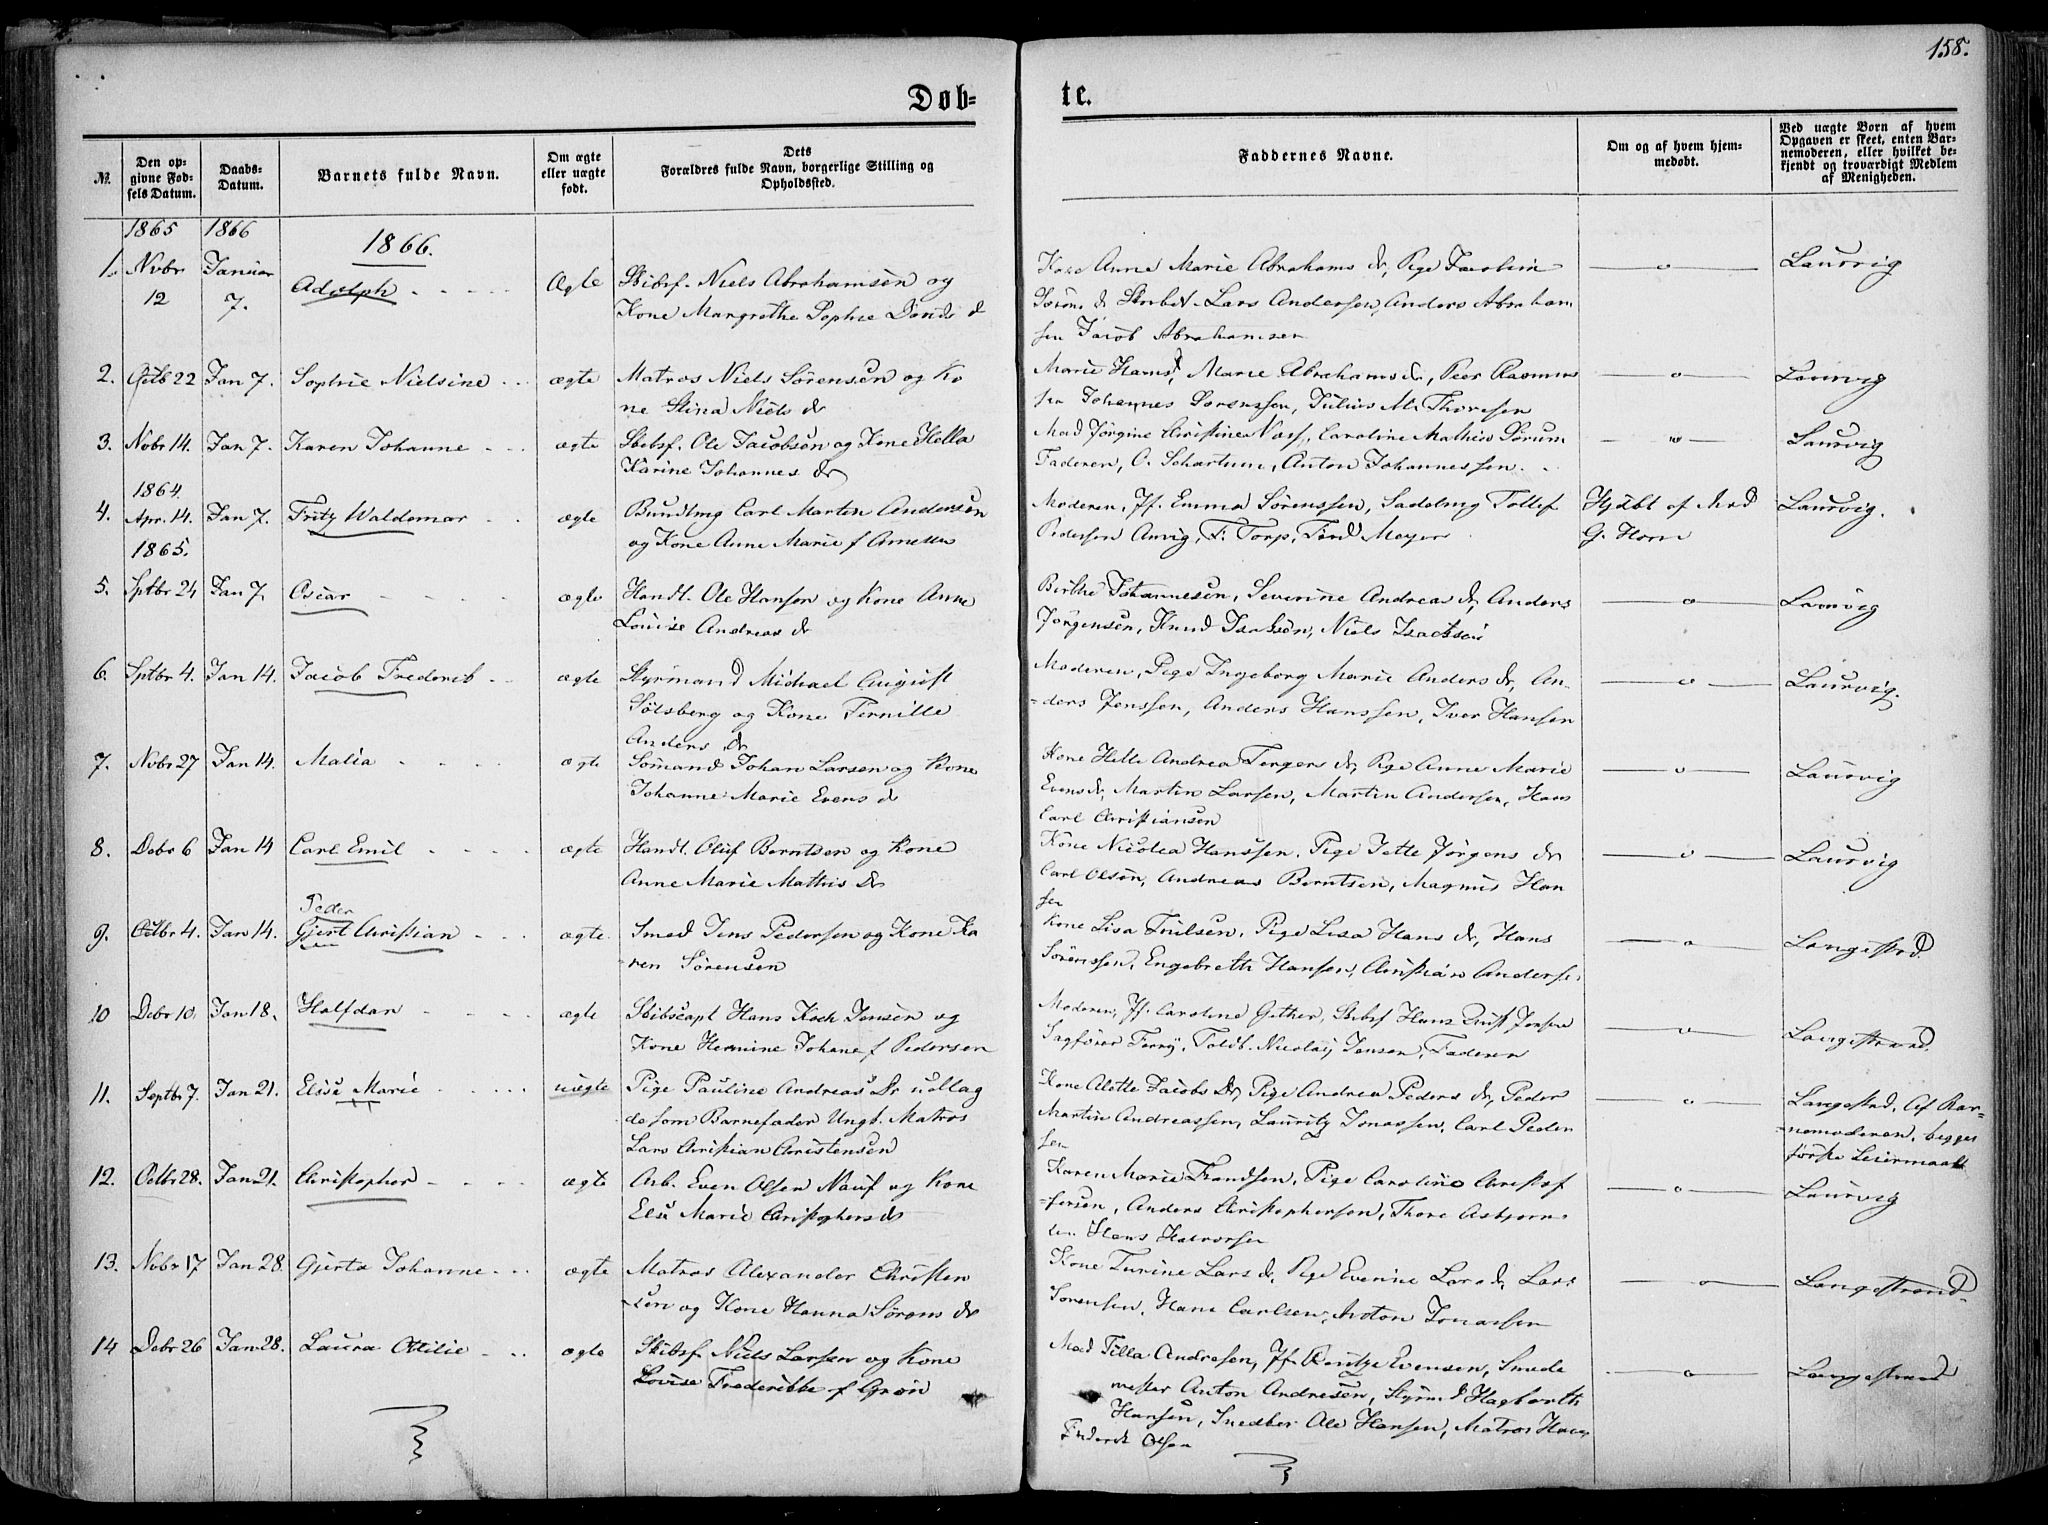 158.
Døb=
te.
№.
Den op=
givne Fød=
sels Datum.
Daabs=
Datum.
Barnets fulde Navn.
Om ægte
eller uægte
født.
Dets
Forældres fulde Navn, borgerlige Stilling og
Opholdssted.
Faddernes Navne.
Om og af hvem hjem=
medøbt.
Ved uægte Børn af hvem
Opgaven er skeet, enten Bar=
nemoderen, eller hvilket be=
kjendt og troværdigt Medlem
af Menigheden.
1865 1866
1866.
1. Nvbr 12 Januar 7. Adolph Ægte
Skibsf. Niels Abrahamsen og
Kone Margrethe Sophie Davids d
Kone Anne Marie Abrahams dr, Pige
Lars Andersen, Anders Abraham
sen Jacob Abrahamsen
Laurvig
2. Octb 22 Jan 7. Sophie Nielsine ægte
Matros Niels Sørensen og Ko
ne Stina Niels dr
Marie Hans, Marie Abrahams dr, Peer Rasmus
sen Johannes Sorenssen, Julius M. Thoresen
Laurvig
3. Nvbr 14. Jan 7. Karen Johanne ægte
Skibsf. Ole Jacobsen og Kone Hella
Karine Johannes dr
Mad Jørgine Christine, Caroline Mathea Sørum
Faderen, O. Schartum, Anton Johannessen.
Laurvig
1864.
4. Apr. 14. Jan 7. Fritz Waldemar ægte
Bundtmg Carl Martin Andersen
og Kone Anne Marie f
Moderen, Jf. Emma Sørenssen, Saddlmg Tollef
Pedersen Anvig, F. Torp, Ferd Meyer
Hjdøbt af Mad
G. Horn
Laurvig.
1865.
5. Sptbr 24 Jan 7. Oscar ægte
Handl. Ole Hansen og Kone Anne
Louise Andreas dr
Birthe Johannesen, Severine Andreas dr, Anders
Jørgensen, Knud Isaksen, Niels Isachsen
Laurvig
6. Sptbr 4. Jan 14. Jacob Frederik ægte
Styrmand Michael August
Solsberg og Kone Pernille
Anders dr
Moderen, Pige Ingeborg Marie Anders dr, An=
=ders Jenssen, Anders Hanssen, Iver Hansen
Laurvig.
7. Nvbr 27 Jan 14. Malia ægte
Sømand Johan Larsen og Kone
Johanne Marie Evens d
Kone Helle Andrea Torgers dr, Pige Anne Marie
Evens dr, Martin Larsen, Martin Andersen, Hans
Carl Christiansen
Laurvig
8. Debr 6 Jan 14 Carl Emil ægte
Handl. Oluf Berntsen og Kone
Anne Marie Mathis dr
Kone Nicolea Hanssen, Pige Jette Jørgens dr
Carl Olsen, Andreas Berntsen, Magnus Han
sen
Laurvig
9. Octbr 4. Jan 14. Peder
Gjert Christian ægte
Smed Jens Pedersen og Kone Ka
=ren Sørensen
Kone Lisa Trulsen, Pige Lisa Hans dr, Hans
Sørenssen, Engebreth Hansen, Christian Anderse
Langestrd
10 Debr 10. Jan 18. Halfdan ægte
Skibscapt Hans Koch Jensen og
Kone Hermine Johane f Pedersen
Moderen, Jf. Caroline Gether, Skibsf Hans Jensen
Sagfører, Toldb. Nicolaij Jensen, Faderen
Langestrand.
11. Septbr 7. Jan 21. Elise Marie uægte
Pige Pauline Andreas Dr udlag
de som Barnefader Ungk. Matros
Lars Christian Christensen
Kone Alette Jacobs Dr, Pige Andrea Peders dr, Peder
Martin Andreassen, Lauritz Jonassen, Carl Peder
sen
Langestrd, Af Bar=
=nemoderen, begges
første Leiermaal
12. Octbr 28. Jan 21. Christopher ægte
Arb. Even Olsen og Kone
Else Marie Christophers dr
Karen Marie Frandsen, Pige Caroline Christof
=fersen, Anders Christophersen, Thore Asbjørn
sen Hans Halvorsen
Laurvig
13. Nvbr 17 Jan 28. Gjerta Johanne ægte
Matros Alexander Christen
=sen og Kone Hanna Sørens dr
Kone Turine Lars dr, Pige Evenine Lars dr, Lars
Sørensen, Hans Carlsen, Anton Jonassen
Langestrand.
14 Debr 26 Jan 28. Laura Ottilie ægte
Skibsf. Niels Larsen og Kone
Lovise Frederikke f Grøn
Mad Tilla Andresen, Jf. Evensen, Smede
mester Anton Andresen, Styrmd Hagbarth
Hansen, Snedker Ole Hansen, Matros Hans
Frederik Olsen
Langestrand